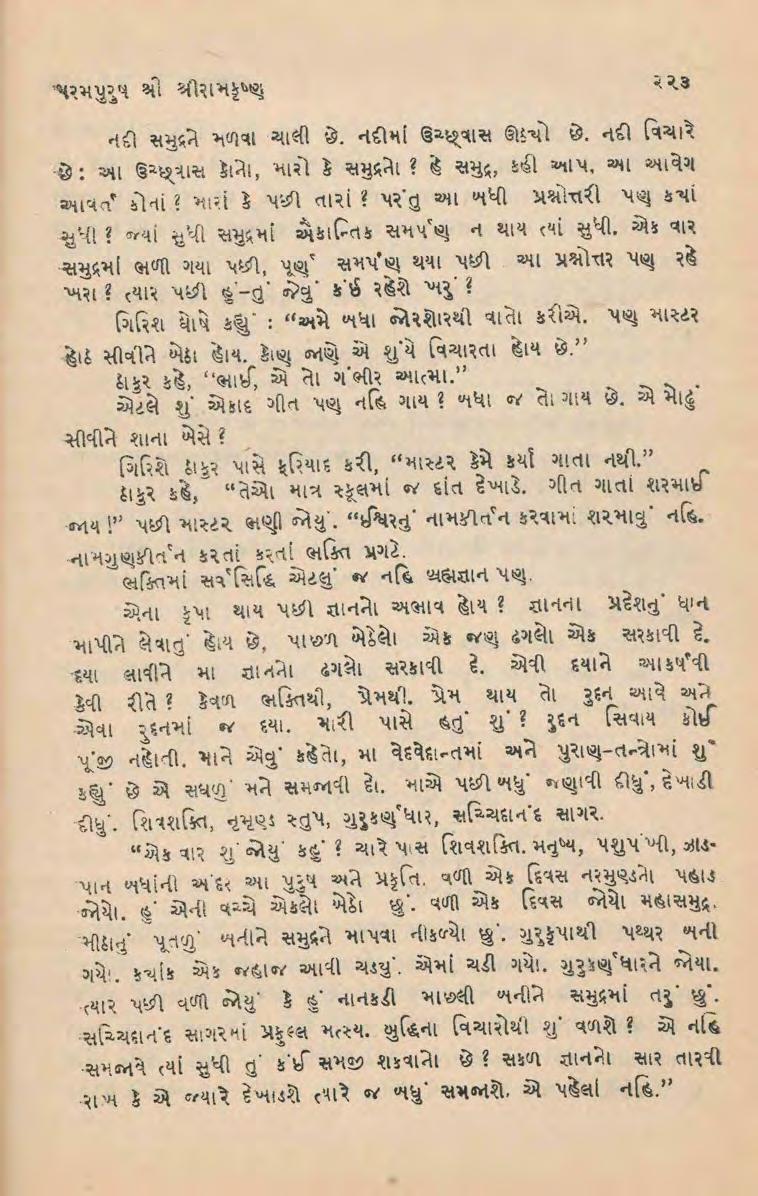 પરમપુરુષ શ્રી શ્રીરામકૃષ્ણ
૨૨૩
નદી સમુદ્રને મળવા ચાલી છે. નદીમાં ઉચ્છ્વાસ ઊઠ્યો છે. નદી વિચારે
છે : આ ઉચ્છ્વાસ કોનો, મારો કે સમુદ્રનો ? હે સમુદ્ર, કહી આપ, આ આવેગ
આવર્ત કોનાં ? મારાં કે પછી તારાં ? પરંતુ આ બધી પ્રશ્નોત્તરી પણ ક્યાં
સુધી ? જ્યાં સુધી સમુદ્રમાં ઐકાન્તિક સમર્પણ ન થાય ત્યાં સુધી. એક વાર
સમુદ્રમાં ભળી ગયા પછી, પૂર્ણ સમર્પણ થયા પછી આ પ્રશ્નોત્તર પણ રહે
ખરા ? ત્યાર પછી હું–તું જેવું કંઈ રહેશે ખરું ?
ગિરિશ ઘોષે કહ્યું : “અમે બધા જોરશોરથી વાતો કરીએ. પણ માસ્ટર
હોઠ સીવીને બેઠા હોય. કોણ જાણે એ શુંયે વિચારતા હોય છે.”
ઠાકુર કહે, “ભાઈ, એ તો ગંભીર આત્મા.”
એટલે શું એકાદ ગીત પણ નહિ ગાય ? બધા જ તો ગાય છે. એ મોઢું
સીવીને શાના બેસે ?
ગિરિશે ઠાકુર પાસે ફરિયાદ કરી, “માસ્ટર કેમે કર્યા ગાતા નથી.”
ઠાકુર કહે, “તેઓ માત્ર સ્કૂલમાં જ દાંત દેખાડે. ગીત ગાતાં શરમાઈ
જાય !” પછી માસ્ટર ભણી જોયું. “ઈશ્વરનું નામકીર્તન કરવામાં શરમાવું નહિ.
નામગુણકીર્તન કરતાં કરતાં ભક્તિ પ્રગટે.
ભક્તિમાં સર્વસિદ્ધિ એટલું જ નહિ બ્રહ્મજ્ઞાન પણ.
એના કૃપા થાય પછી જ્ઞાનનો અભાવ હોય ? જ્ઞાનના પ્રદેશનું ધાન
માપીને લેવાતું હોય છે, પાછળ બેઠેલો એક જણ ઢગલો એક સરકાવી દે.
દયા લાવીને મા જ્ઞાનનો ઢગલો સરકાવી દે. એવી દયાને આકર્ષવી
કેવી રીતે ? કેવળ ભક્તિથી, પ્રેમથી. પ્રેમ થાય તો રુદન આવે અને
એવા રુદનમાં જ દયા. મારી પાસે હતું શું ? રુદન સિવાય કોઈ
પૂંજી નહોતી. માને એવું કહેતો, મા વેદવેદાન્તમાં અને પુરાણ–તન્ત્રોમાં શું
કહ્યું છે એ સઘળું મને સમજાવી દો. માએ પછી બધું જણાવી દીધું, દેખાડી
દીધું. શિવશક્તિ, નૃમુણ્ડ સ્તુપ, ગુરુકર્ણધાર, સચ્ચિદાનંદ સાગર.
“એક વાર શું જોયું કહું ? ચારે પાસ શિવશક્તિ. મનુષ્ય, પશુપંખી, ઝાડ-
પાન બધાંની અંદર આ પુરુષ અને પ્રકૃતિ. વળી એક દિવસ નરમુણ્ડનો પહાડ
જોયો. હું એની વચ્ચે એકલો બેઠો છું. વળી એક દિવસ જોયો મહાસમુદ્ર.
મીઠાનું પૂતળું બનીને સમુદ્રને માપવા નીકળ્યો છું. ગુરુકૃપાથી પથ્થર બની
ગયો. ક્યાંક એક જહાજ આવી ચડ્યું. એમાં ચડી ગયો. ગુરુકર્ણધારને જોયા.
ત્યાર પછી વળી જોયું કે હું નાનકડી માછલી બનીને સમુદ્રમાં તરું છું.
સચ્ચિદાનંદ સાગરમાં પ્રફુલ્લ મત્સ્ય. બુદ્ધિના વિચારોથી શું વળશે ? એ નહિ
સમજાવે ત્યાં સુધી તું કંઈ સમજી શકવાનો છે ? સકળ જ્ઞાનનો સાર તારવી
રાખ કે એ જ્યારે દેખાડશે ત્યારે જ બધું સમજાશે. એ પહેલાં નહિ.”